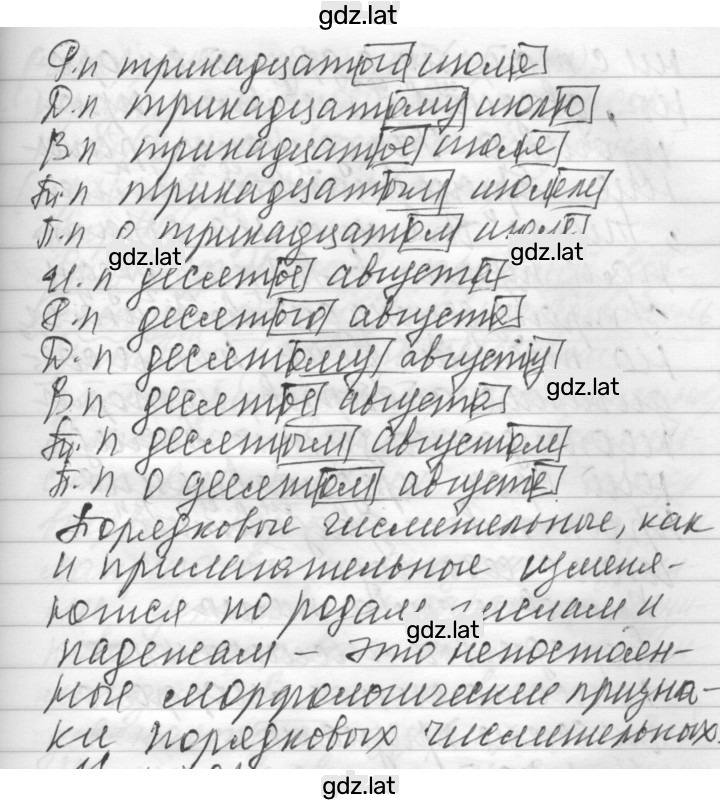 gdz.lat
Р.п тринадцатого июля
Д.п тринадцатому июлю
В.п тринадцатое июля
Тв.п тринадцатым июлем
П.п о тринадцатом июле
gdz.lat gdz.lat
И.п десятое августа
Р.п десятого августа
Д.п десятому августу
gdz.lat
В.п десятое августа
Тв.п десятым августом
П.п о десятом августе
Порядковые числительные, как
и прилагательные изменя-
ются по родам числам и
gdz.lat
падежам – это непостоян-
ные морфологические призна-
ки порядковых числительных.
gdz.lat